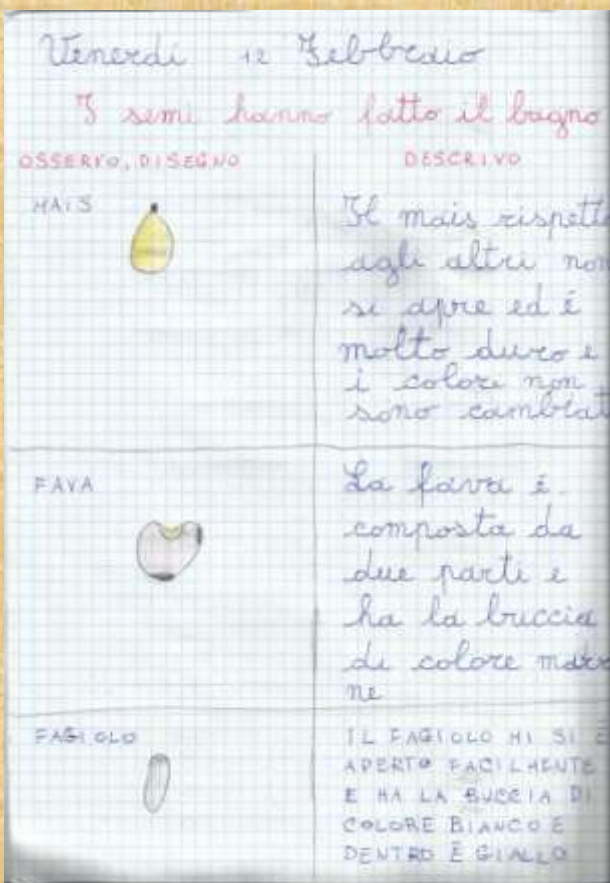 Venerdì 12 Febbraio
I semi hanno fatto il bagno
OSSERVO, DISEGNO
DESCRIVO
MAIS
Il mais rispett
agli altri non
si apre ed è
molto duro e
i colori non
sono cambiat
FAVA
La fava è
composta da
due parti e
ha la buccia
di colore marro
ne
FAGIOLO
IL FAGIOLO MI SI È
APERTO FACILMENTE
E HA LA BUCCIA DI
COLORE BIANCO E
DENTRO È GIALLO